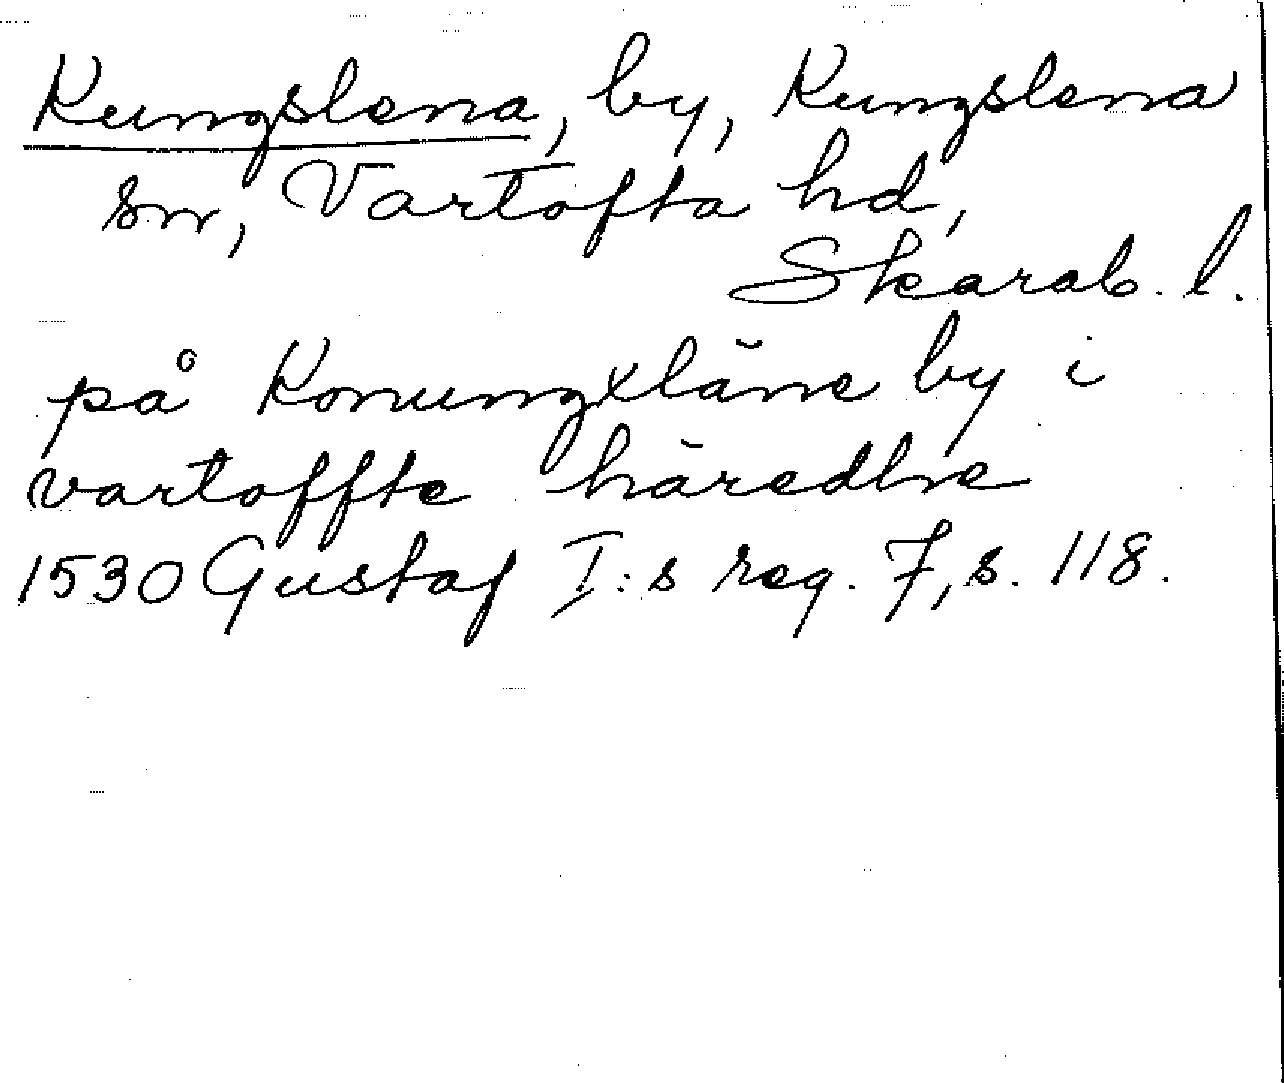 Kungslena, by, Kungslena
sn, Vartofta hd,
Skarab. l.
på Konungxläne by i
vartoffte häredhe
1530 Gustaf I:s reg. 7, s. 118.